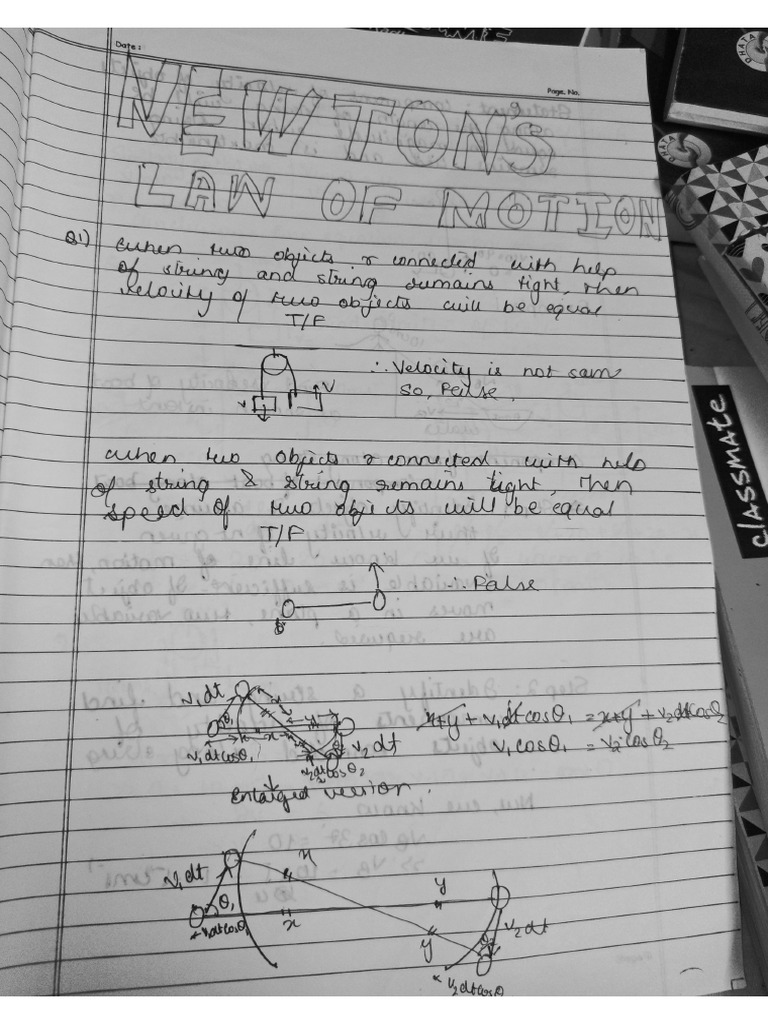 Date :
Page. No.
NEWTONS
LAW OF MOTION
Q1) When two objects r connected with help
of string and string remains tight, then
velocity of two objects will be equal
T/F
∴ Velocity is not sam
v
V
so, False.
When two objects r connected with help
of string & string remains tight, then
speed of two objects will be equal
T/F
∴ False
v₁dt
θ₁
x
y
x
v₁dtcosθ₁
v₂dt
v₂dtcosθ₂
x+y + v₁dtcosθ₁ = x+y + v₂dtcosθ₂
v₁cosθ₁ = v₂cosθ₂
Enlarged version.
v₁dt
x
θ₁
y
v₁dtcosθ₁
x
y
v₂dt
v₂dtcosθ
classmate
DHATA
DHATA